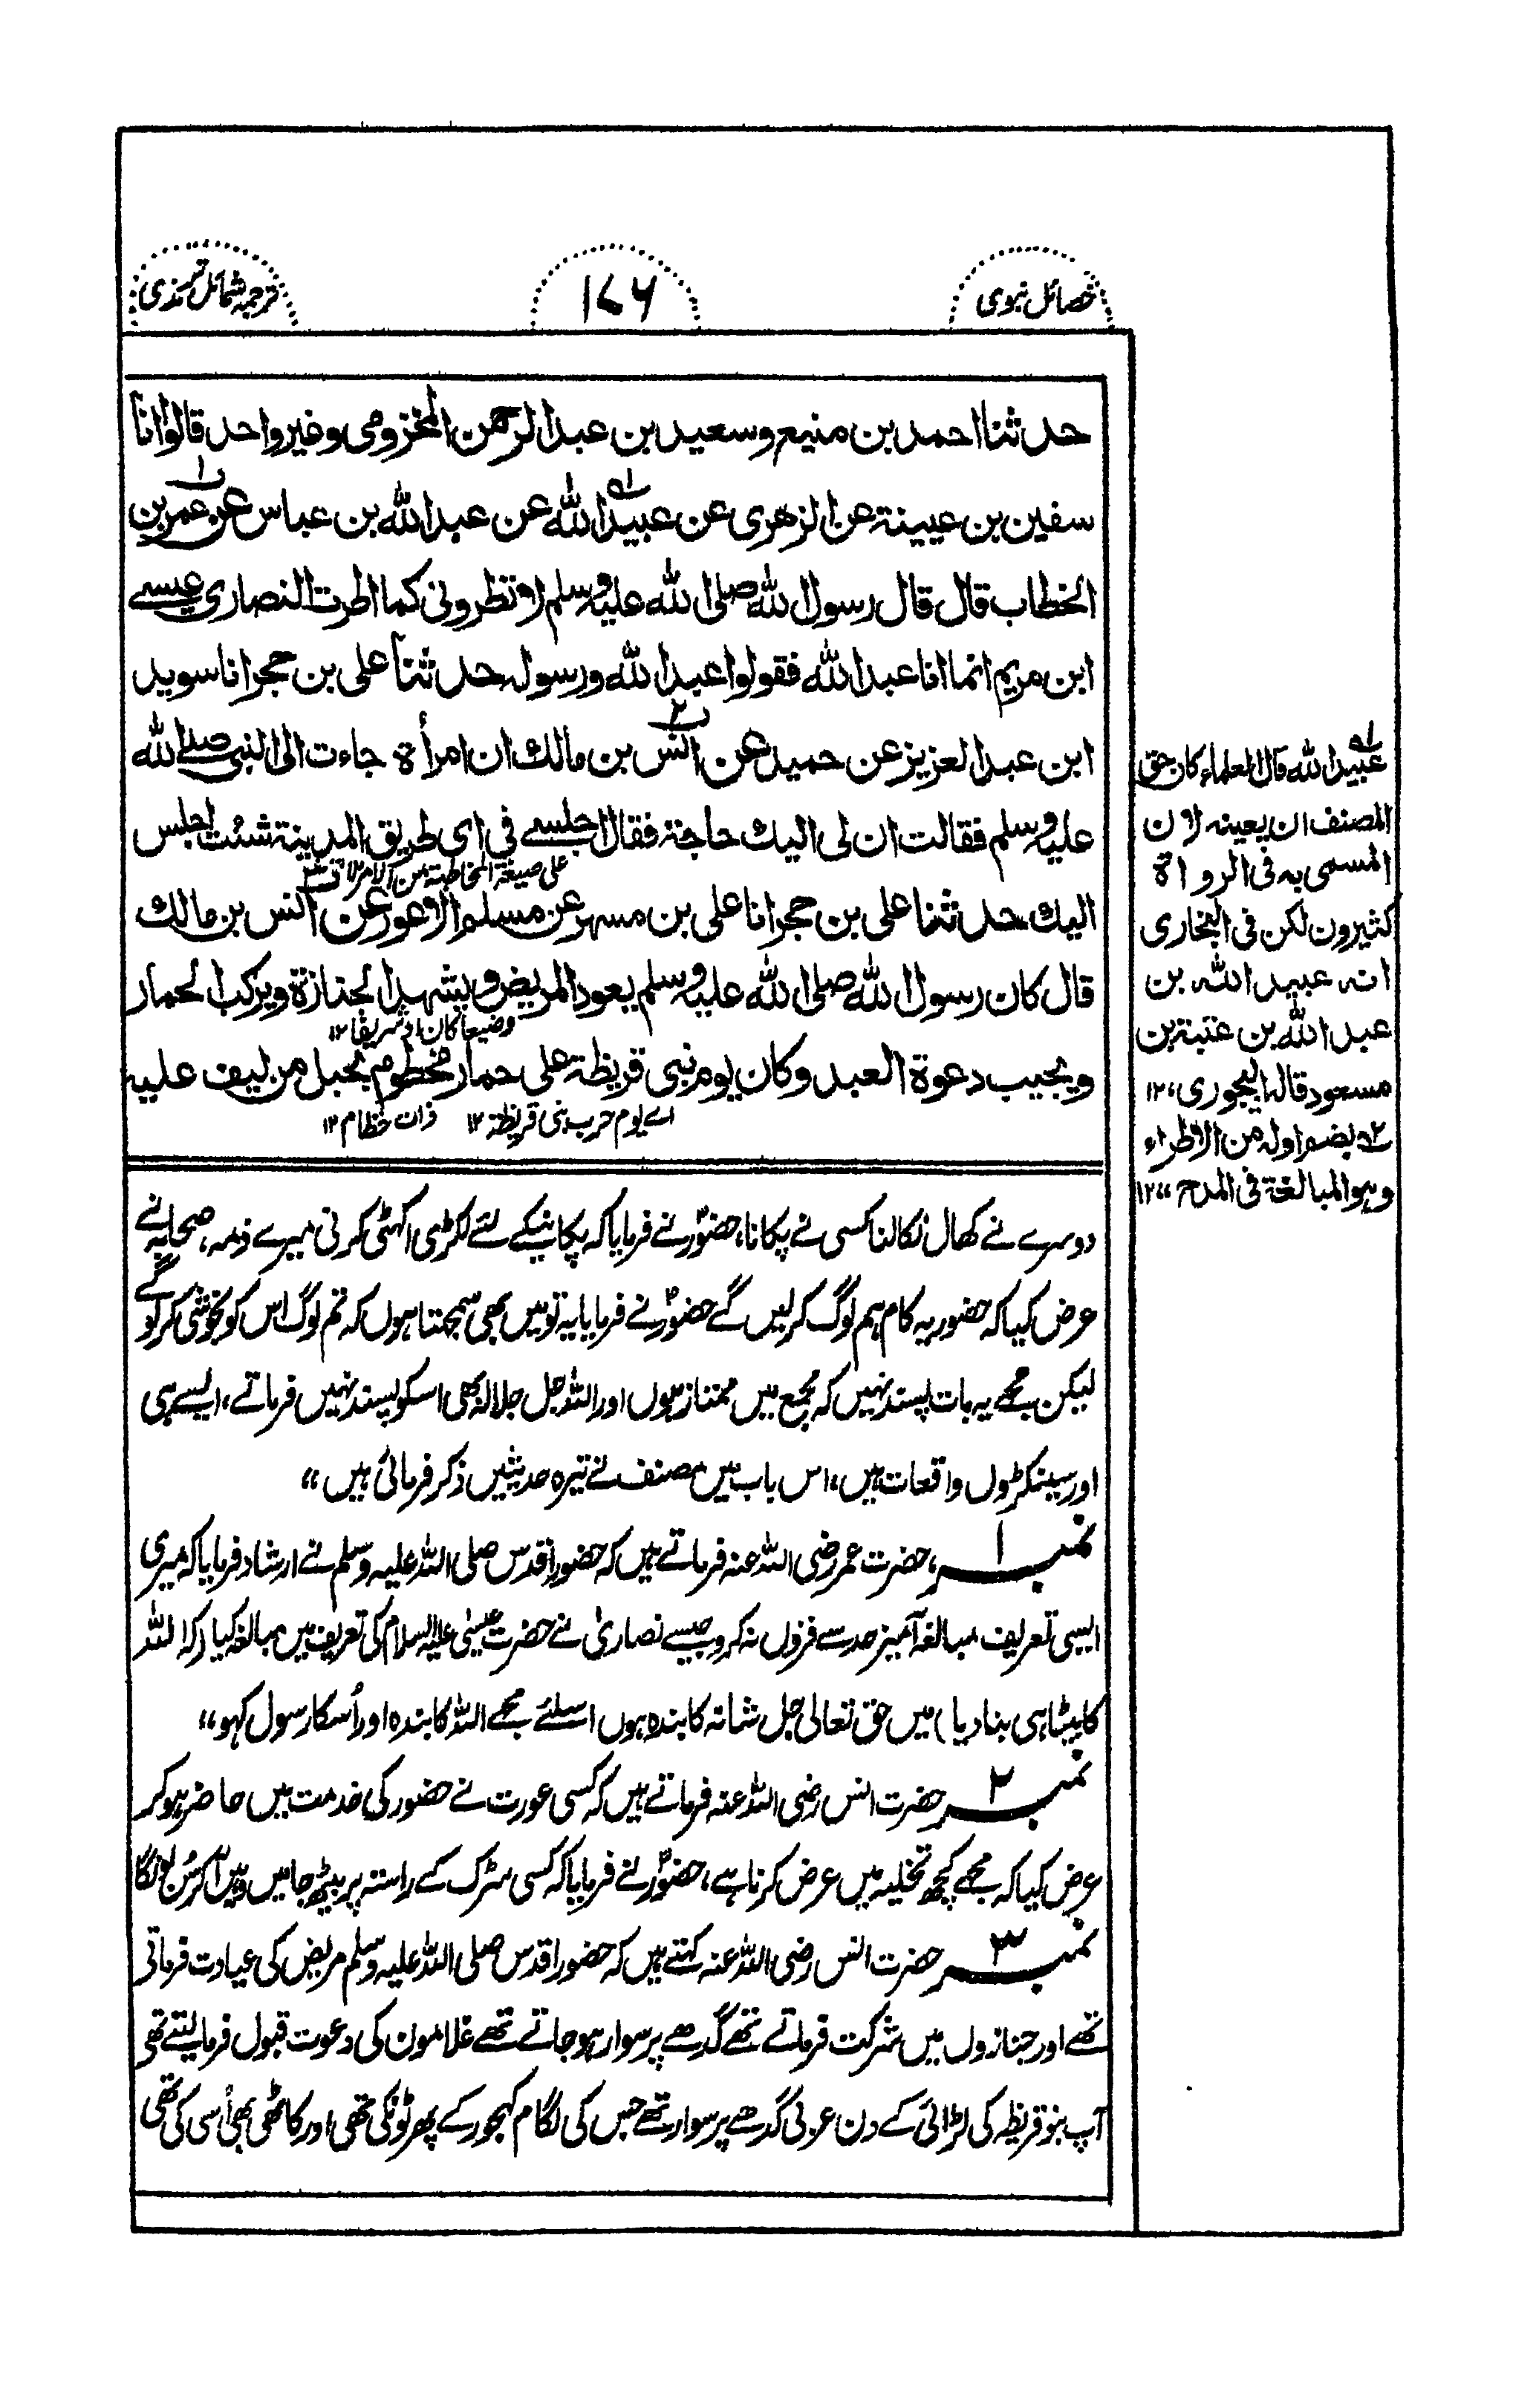 خصائل نبوی
۱۷۶
ترجمہ شمائل ترمذی
حدثنا احمد بن منیع وسعید بن عبدالرحمن المخزومی وغیر واحد قالوا انا
سفین بن عیینة عن الزهری عن عبیدالله عن عبدالله بن عباس عن عمر بن
الخطاب قال قال رسول الله صلی الله علیه وسلم لا تطرونی کما اطرت النصاری عیسے
ابن مریم انما انا عبدالله فقولوا عبدالله ورسوله حدثنا علی بن حجر انا سوید
ابن عبدالعزیز عن حمید عن انس بن مالك ان امرأة جاءت الی النبی صلے الله
علیه وسلم فقالت ان لی الیك حاجة فقال اجلسے فی ای طریق المدینة شئت اجلس
علی صیغة المخاطبة من الامر ۱۲
الیك حدثنا علی بن حجر انا علی بن مسهر عن مسلم الاعور عن انس بن مالك
قال کان رسول الله صلی الله علیه وسلم یعود المریض ویشهد الجنازة ویرکب الحمار
وضیعا کان او شریفا ۱۲
ویجیب دعوة العبد وکان یوم بنی قریظة علی حمار مخطوم بحبل من لیف علیه
اے یوم حرب بنی قریظة ۱۲ ذات خطام ۱۲
عبیدالله قال العلماء کان حق
المصنف ان یعینه لان
المسمی به فی الرواة
کثیرون لکن فی البخاری
انه عبید الله بن
عبدالله بن عتبة بن
مسعود قاله البیجوری ۱۲
۲ بضم اوله من الاطراء
وهو المبالغة فی المدح ۱۲
دوسرے نے کھال نکالنا کسی نے پکانا، حضورؐ نے فرمایا کہ پکانیکے لئے لکڑی اکہٹی کرنی میرے ذمہ، صحابہ نے
عرض کیا کہ حضور یہ کام ہم لوگ کر لیں گے حضورؐ نے فرمایا یہ تو میں بھی سمجھتا ہوں کہ تم لوگ اس کو بخوشی کر لو گے
لیکن مجھے یہ بات پسند نہیں کہ مجمع میں ممتاز ہوں اور اللہ جل جلالہ بھی اسکو پسند نہیں فرماتے، ایسے ہی
اور سینکڑوں واقعات ہیں، اس باب میں مصنف نے تیرہ حدیثیں ذکر فرمائی ہیں ،،
نمبر ۱، حضرت عمر رضی اللہ عنہ فرماتے ہیں کہ حضور اقدس صلی اللہ علیہ وسلم نے ارشاد فرمایا کہ میری
ایسی تعریف مبالغہ آمیز حد سے فزوں نہ کرو جیسے نصاریٰ نے حضرت عیسیٰ علیہ السلام کی تعریف میں مبالغہ کیا (کہ اللہ
کا بیٹا ہی بنا دیا) میں حق تعالی جل شانہ کا بندہ ہوں اسلئے مجھے اللہ کا بندہ اور اُسکا رسول کہو ،،
نمبر ۲ حضرت انس رضی اللہ عنہ فرماتے ہیں کہ کسی عورت نے حضور کی خدمت میں حاضر ہو کر
عرض کیا کہ مجھے کچھ تخلیہ میں عرض کرنا ہے، حضورؐ نے فرمایا کہ کسی سڑک کے راستہ پر بیٹھ جا میں وہیں آکر سُن لونگا
نمبر ۳ حضرت انس رضی اللہ عنہ کہتے ہیں کہ حضور اقدس صلی اللہ علیہ وسلم مریض کی عیادت فرماتی
تھے اور جنازوں میں شرکت فرماتے تھے گدھے پر سوار ہو جاتے تھے غلامون کی دعوت قبول فرما لیتے تھی
آپ بنو قریظہ کی لڑائی کے دن عربی گدھے پر سوار تھے جس کی لگام کہجور کے پھر ٹونکی تھی اور کاٹھی بھی اُسی کی تھی